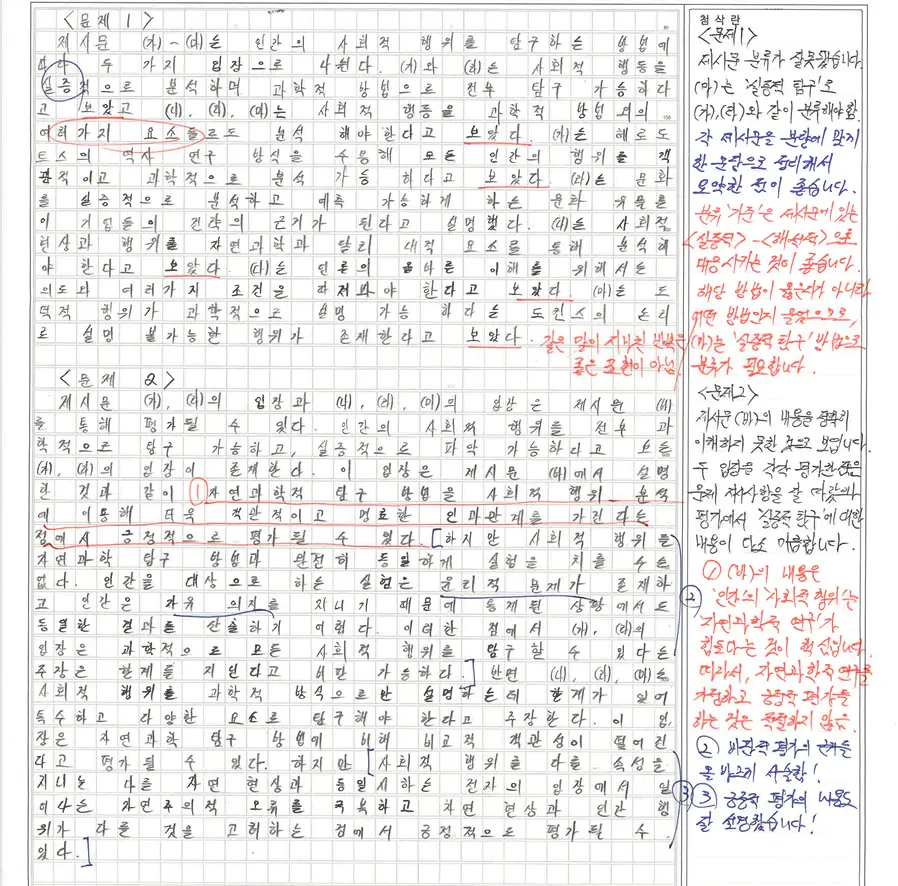 <문제 1>
제시문 (가)~(마)는 인간의 사회적 행위를 탐구하는 방법에
따라 두 가지 입장으로 나뉜다. (가)와 (라)는 사회적 행동을
실증적으로 분석하며 과학적 방법으로 전부 탐구 가능하다
고 보았고 (나), (다), (마)는 사회적 행동을 과학적 방법 외의
여러가지 요소들로도 분석 해야 한다고 보았다. (가)는 헤로도
토스의 역사 연구 방식을 수용해 모든 인간의 행위를 객
관적이고 과학적으로 분석 가능 하다고 보았다. (라)는 문화
를 실증적으로 분석하고 예측 가능하게 하는 문화 유물론
이 거임들의 건축의 근거가 된다고 설명했다. (나)는 사회적
현상과 행위를 자연과학과 달리 내적 요소를 통해 분석해
야 한다고 보았다. (다)는 언론의 올바른 이해를 위해서는
의도와 여러가지 조건을 따져봐야 한다고 보았다. (마)는 도
덕적 행위가 과학적으로 설명 가능 하다는 도킨스의 논리
로 설명 불가능한 행위가 존재한다고 보았다.
같은 말이 지나친 반복은
좋은 표현이 아님.
<문제 2>
제시문 (가), (라)의 입장과 (나), (다), (마)의 입장은 제시문 (바)
를 통해 평가될 수 있다. 인간의 사회적 행위를 전부 과
학적으로 탐구 가능하고, 실증적으로 파악 가능하다고 보는
(가), (라)의 입장이 존재한다. 이 입장은 제시문 (바)에서 설명
한 것과 같이 ① 자연과학적 탐구 방법을 사회적 행위 분석
에 이용해 더욱 객관적이고 명료한 인과관계를 가진다는
점에서 긍정적으로 평가될 수 있다. [하지만 사회적 행위를
자연과학 탐구 방법과 완전히 동일하게 실험을 치를 수는
없다. 인간을 대상으로 하는 실험은 윤리적 문제가 존재하
고 인간은 자유 의지를 지니기 때문에 통제된 상황에서도 ②
동일한 결과를 산출하기 어렵다. 이러한 점에서 (가), (라)의
입장은 과학적으로 모든 사회적 행위를 탐구할 수 있다는
주장은 한계를 지닌다고 비판 가능하다.] 반면 (나), (다), (마)는
사회적 행위를 과학적 방식으로만 설명하는데 한계가 있어
특수하고 다양한 요소로 탐구해야 한다고 주장한다. 이 입
장은 자연과학 탐구 방법에 비해 비교적 객관성이 떨어진
다고 평가될 수 있다. 하지만 [사회적 행위를 다룰 속성을
지니는 다른 자연 현상과 동일시하는 전자의 입장에서 일
어나는 자연주의적 오류를 극복하고 자연 현상과 인간 행 ③
위가 다를 것을 고려하는 점에서 긍정적으로 평가될 수
있다.]
첨삭란
<문제1>
제시문 분류가 잘못됐습니다.
(마)는 '실증적 탐구'로
(가),(라)와 같이 분류해야함.
각 제시문을 분량에 맞게
한 문장으로 정리해서
요약한 점이 좋습니다.
분류 '기준'은 제시문에 있는
<실증적> - <해석적>으로
대응시키는 것이 좋습니다.
해당 방법이 옳은지가 아니라
어떤 방법인지 물었으므로,
(마)는 '실증적 탐구' 방법으로
분류가 필요합니다.
<문제2>
제시문 (바)의 내용을 정확히
이해하지 못한 것으로 보입니다.
두 입장을 각각 평가한 점은
문제 지시사항을 잘 따랐으나
평가에서 '실증적 탐구'에 대한
내용이 다소 미흡합니다.
① (바)의 내용은
'인간의 사회적 행위'는
'자연과학적 연구'가
힘들다는 것이 핵심입니다.
따라서, 자연과학적 연구를
가정하고 긍정적 평가를
하는 것은 적절하지 않음.
② 비판적 평가의 근거를
올바르게 서술함!
③ 긍정적 평가의 내용도
잘 설명했습니다!